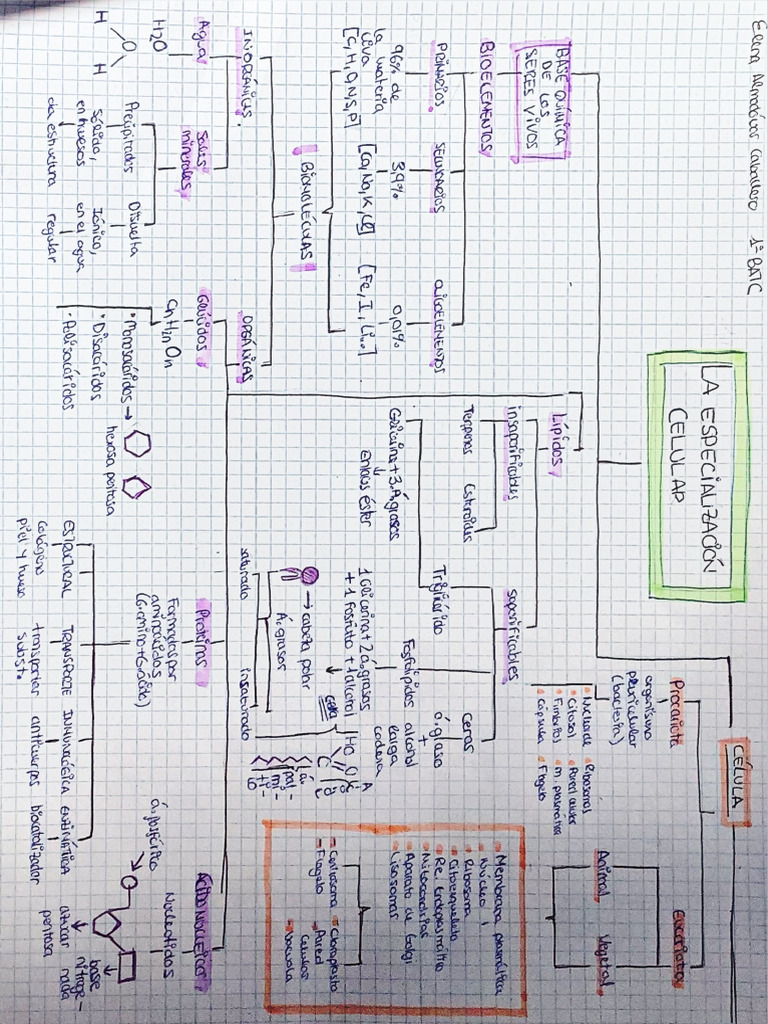 LA ESPECIALIZACIÓN
CELULAR
BASE QUÍMICA
DE LOS
SERES VIVOS
BIOELEMENTOS
PRIMARIOS
96% de
la materia
viva
[C,H,O,N,S,P]
SECUNDARIOS
3,9%
[Ca,Na,K,Cl]
OLIGOELEMENTOS
0,01%
[Fe, I, Li..]
BIOMOLÉCULAS
INORGÁNICAS.
Agua
H2O
H O H
Sales
minerales
Precipitadas
Sólido,
en huesos
da estructura
Disuelta
Iónico,
en el agua
regular
ORGÁNICAS
Glúcidos
CnH2nOn
• Monosacáridos →
hexosa pentosa
• Disacáridos
• Polisacáridos
Lípidos
insaponificables
Terpenos Esteroides
saponificables
Triglicérido
Glicerina + 3 Á.grasos
enlaces éster
Fosfolípidos
1 Glicerina + 2 á.grasos
+ 1 fosfato + 1 alcohol
→ cabeza polar
Á.grasos
saturado insaturado
Ceras
á.graso
+
alcohol
larga
cadena
Proteínas
Formadas por
aminoácidos
ESTRUCTURAL
colágeno
piel y hueso
TRANSPORTE
transportar
subst.
INMUNOLÓGICA
anticuerpos
ENZIMÁTICA
biocatalizador
ÁCIDO NUCLEICO
Nucleótidos
á.fosfórico
base
nitroge-
nada
azúcar
pentosa
CÉLULA
Procariota
organismo
(bacteria)
• Nucleoide
• Citosol
• Fimbrias
• Cápsula
• Ribosomas
• Pared celular
• M. plasmática
• Flagelo
Eucariota
Animal Vegetal
• Membrana plasmática
• Núcleo
• Ribosoma
• Citoesqueleto
• Re. Endoplasmático
• Mitocondrias
• Aparato de Golgi
• Lisosomas
• Centrosoma
• Flagelo
• Cloroplasto
• Pared
celular
• Vacuola